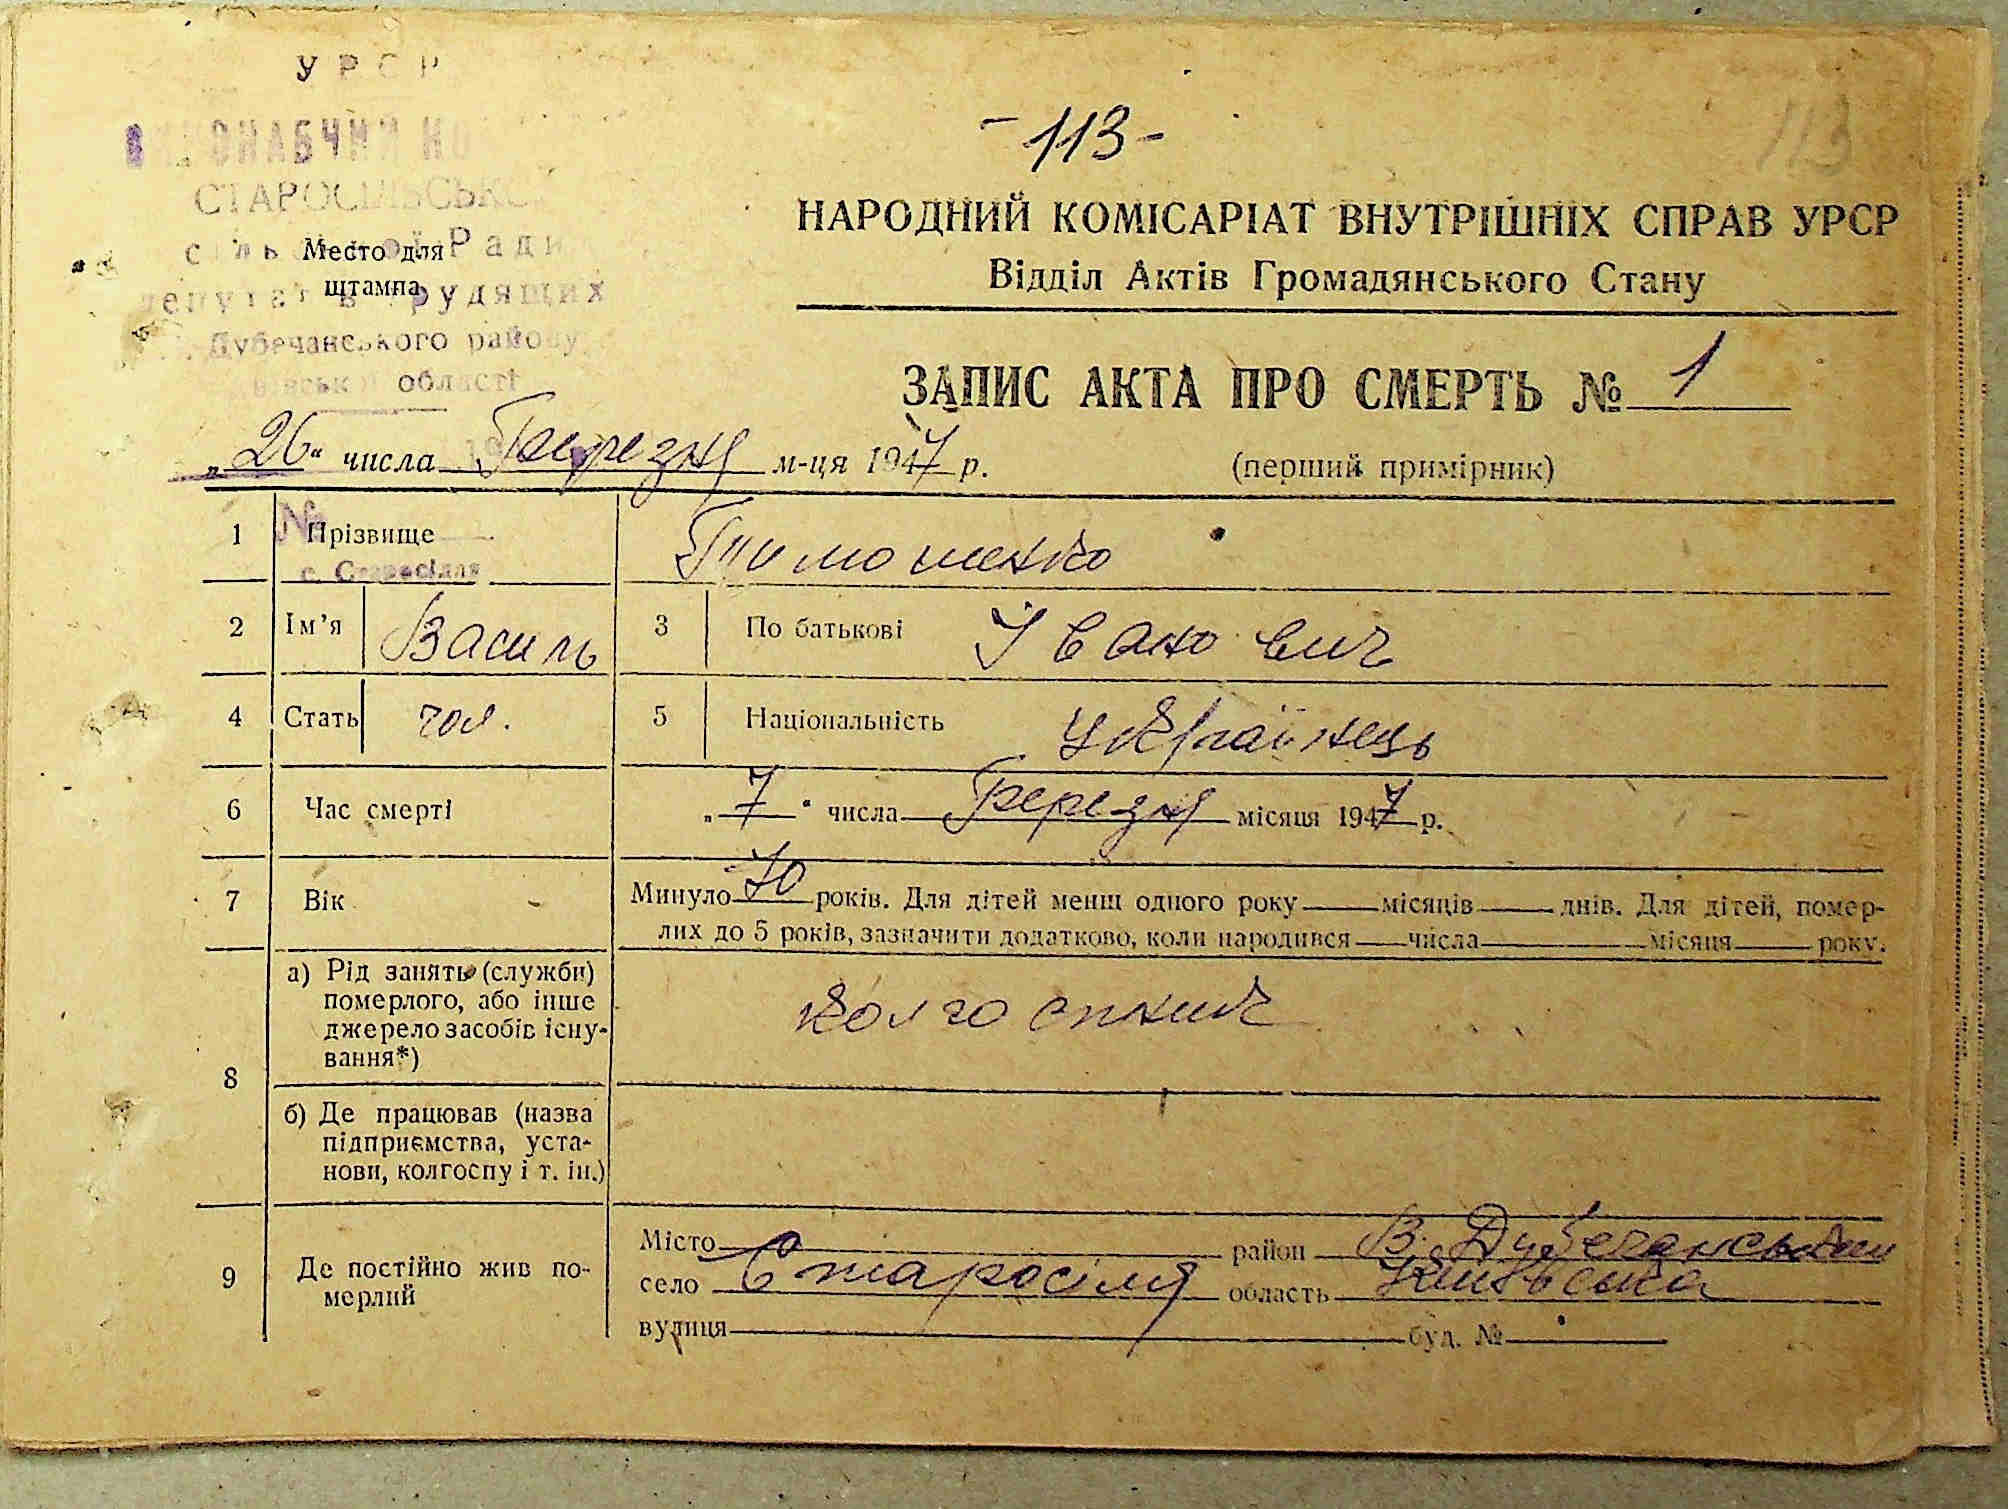 УРСР
ВИКОНАВЧИЙ КО
СТАРОСІЛЬСЬКО
сільської Ради
депутатів трудящих
Дубечанського району
Київської області
Место для
штампа
-113-
113
НАРОДНИЙ КОМІСАРІАТ ВНУТРІШНІХ СПРАВ УРСР
Відділ Актів Громадянського Стану
ЗАПИС АКТА ПРО СМЕРТЬ № 1
„26“ числа Березня м-ця 1947 р. (перший примірник)
№
1 Прізвище Тимошенко
с. Старосілля
2 Ім’я Василь 3 По батькові Іванович
4 Стать чол. 5 Національність Українець
6 Час смерті „7“ числа Березня місяця 1947 р.
7 Вік Минуло 70 років. Для дітей менш одного року місяців днів. Для дітей, помер-
лих до 5 років, зазначити додатково, коли народився числа місяця року.
8 а) Рід занять (служби)
померлого, або інше
джерело засобів існу-
вання*)
колгоспник
б) Де працював (назва
підприємства, уста-
нови, колгоспу і т. ін.)
9 Де постійно жив по-
мерлий
Місто район В. Дубечанський
село Старосілля область Київська
вулиця буд. №